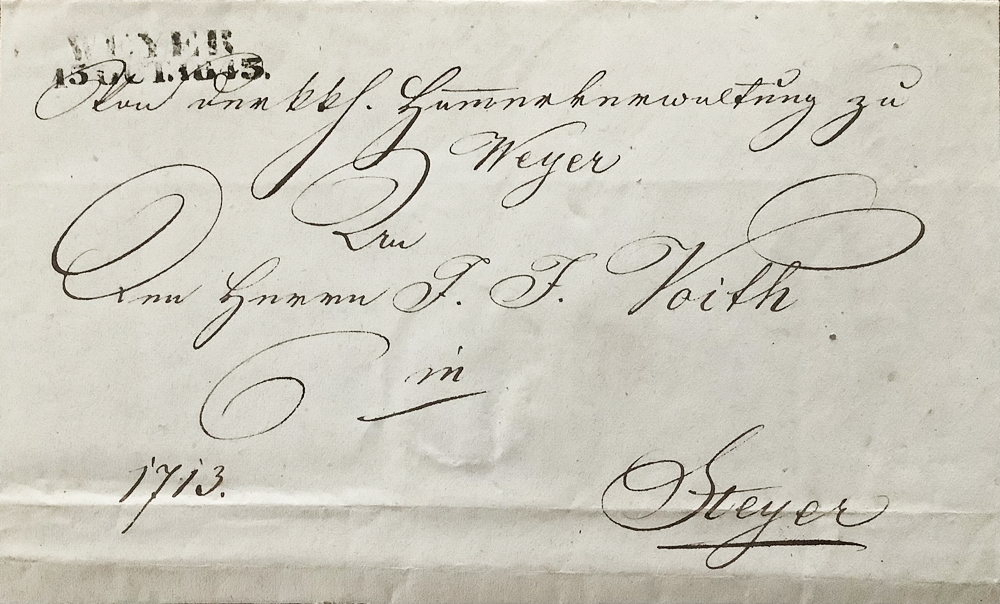 WEYER
13 OCT. 1843.
Von der kk. Hammerverwaltung zu
Weyer
An
Den Herrn J. J. Voith
in
1713.
Steyer